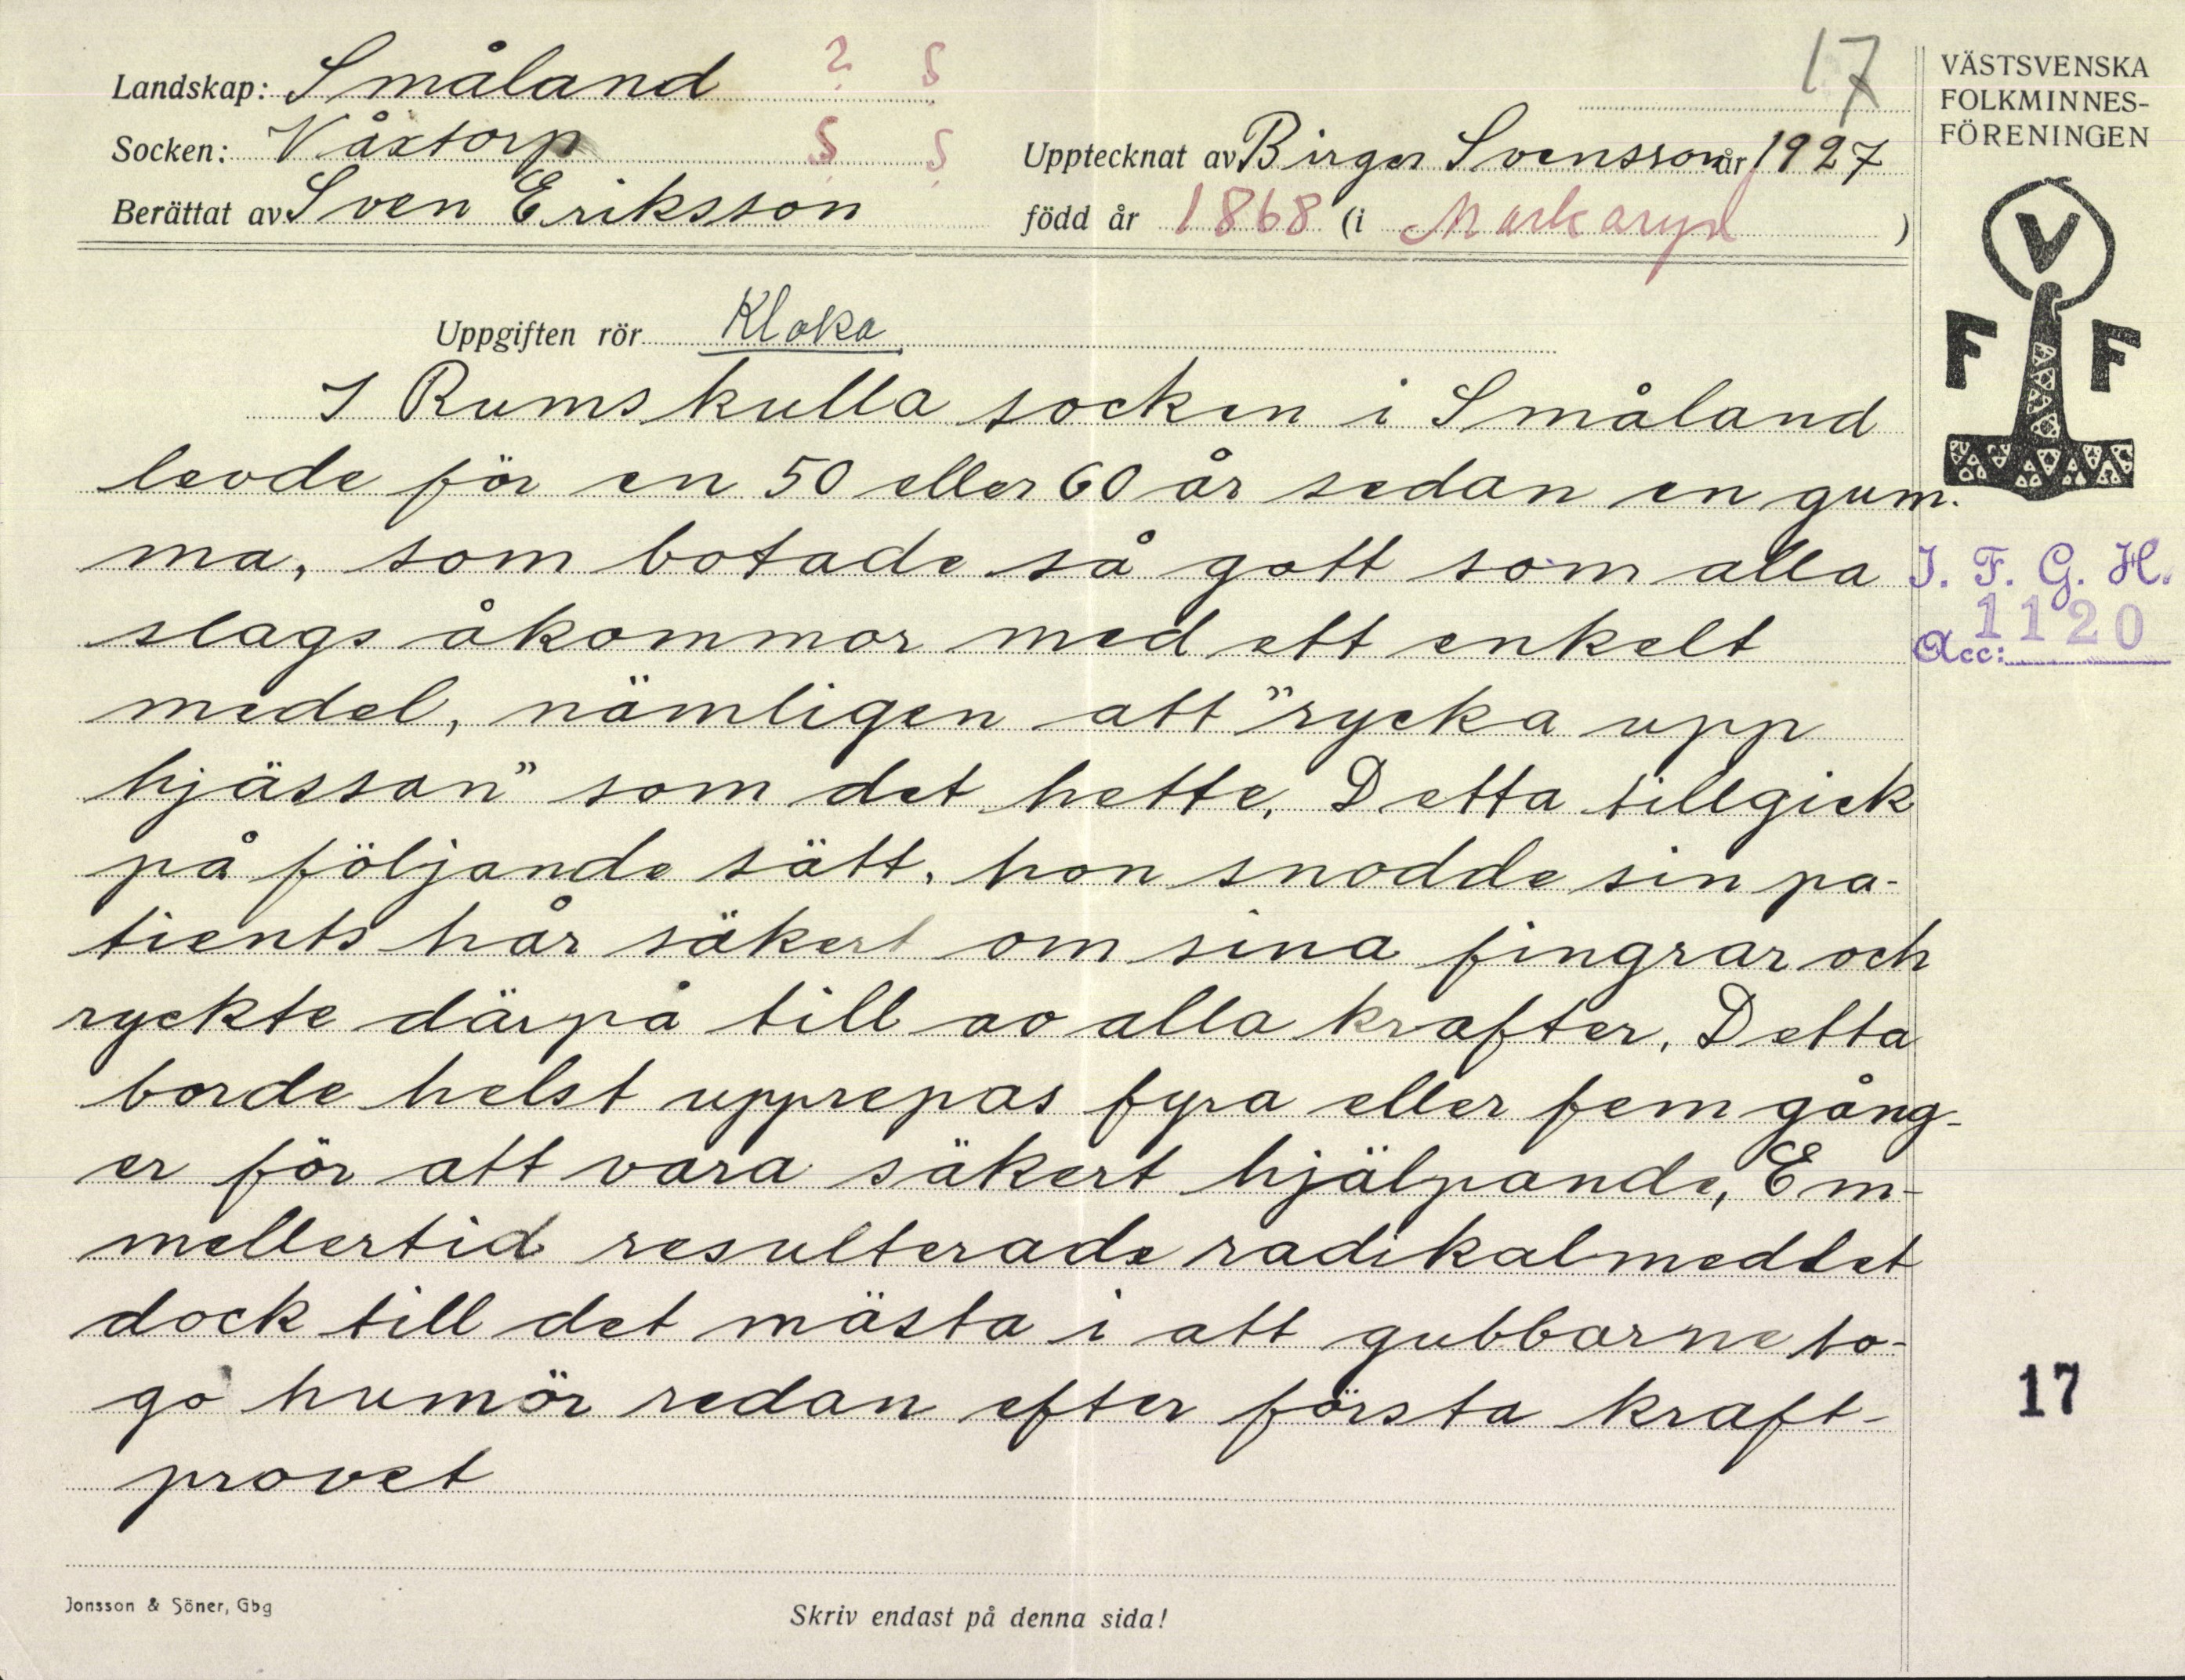 17
Landskap: Småland ? S
Socken: Våxtorp S S
Upptecknat av Birger Svensson år 1927
Berättat av Sven Eriksson
född år 1868 (i Markaryd )
VÄSTSVENSKA
FOLKMINNES-
FÖRENINGEN
V
F F
Uppgiften rör Kloka
I Rumskulla socken i Småland
levde för en 50 eller 60 år sedan en gum-
ma, som botade så gott som alla
slags åkommor med ett enkelt
medel, nämligen att "rycka upp
hjässan" som det hette. Detta tillgick
på följande sätt. hon snodde sin pa-
tients hår säkert om sina fingrar och
ryckte därpå till av alla krafter. Detta
borde helst upprepas fyra eller fem gång-
er för att vara säkert hjälpande, Em-
mellertid resulterade radikalmedlet
dock till det mästa i att gubbarne to-
go humör redan efter första kraft-
provet
I. F. G. H.
Acc: 1120
17
Jonsson & Söner, Gbg
Skriv endast på denna sida!